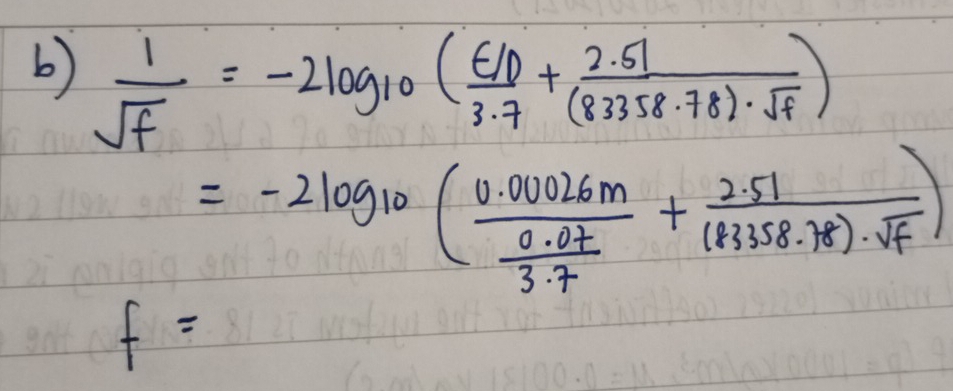 b) 1/√f = -2log10 (E/D/3.7 + 2.51/(83358.78)·√f)
= -2log10 (0.00026m/0.07/3.7 + 2.51/(83358.78)·√f)
f =